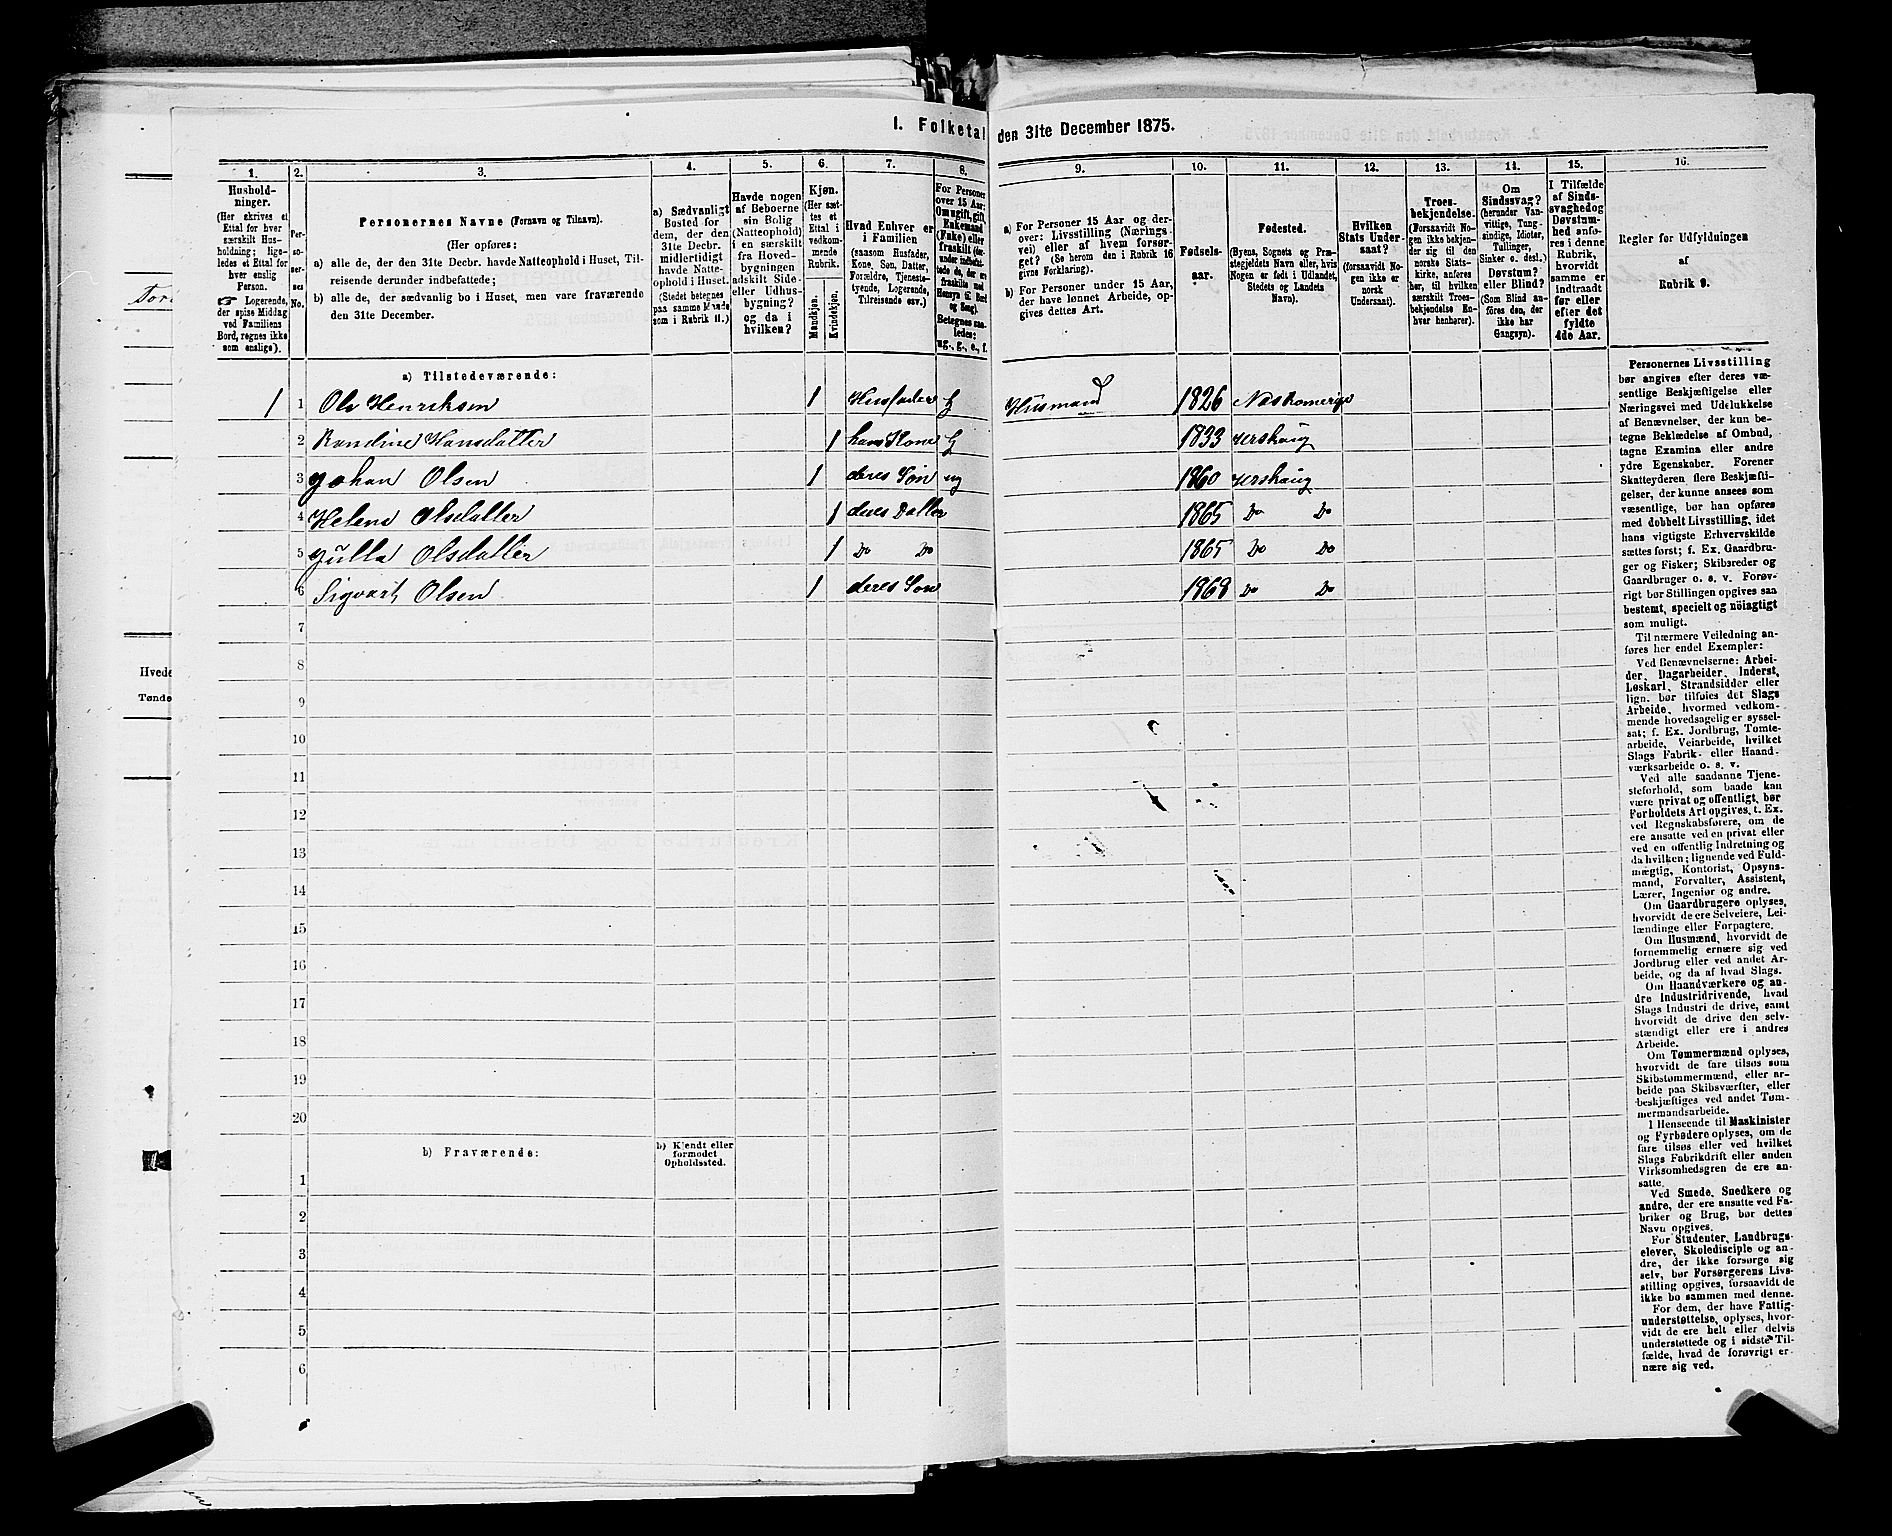 I. Folketal den 31te December 1875.
1. 2. 3. 4. 5. 6. 7. 8. 9. 10. 11. 12. 13. 14. 15. 16.
Hushold-
ninger.
(Her skrives et
Ettal for hver
særskilt Hus-
holdning; lige-
ledes et Ettal for
hver enslig
Person.
Logerende,
der spise Middag
ved Familiens
Bord, regnes ikke
som enslige).
Per-
so-
ner-
nes
No.
Personernes Navne (Fornavn og Tilnavn).
(Her opføres:
a) alle de, der den 31te Decbr. havde Natteophold i Huset, Til-
reisende derunder indbefattede;
b) alle de, der sædvanlig bo i Huset, men vare fraværende
den 31te December.
a) Sædvanligt
Bosted for
dem, der den
31te Decbr.
midlertidigt
havde Natte-
ophold i Huset.
(Stedet betegnes
paa samme Maade
som i Rubrik 11.)
Havde nogen
af Beboerne
sin Bolig
(Natteophold)
i en særskilt
fra Hoved-
bygningen
adskilt Side-
eller Udhus-
bygning?
og da i
hvilken?
Kjøn.
(Her sæt-
tes et
Ettal i
vedkom-
mende
Rubrik.
Mandkjøn.
Kvindekjøn.
Hvad Enhver er
i Familien
(saasom Husfader,
Kone, Søn, Datter,
Forældre, Tjeneste-
tyende, Logerende,
Tilreisende osv.)
For Personer
over 15 Aar:
Om ugift, gift,
Enkemand
(Enke) eller
fraskilt
Betegnes saa-
ledes:
ug., g., e., f.
a) For Personer 15 Aar og der-
over: Livsstilling (Nærings-
vei) eller af hvem forsør-
get? (Se herom den i Rubrik 16
givne Forklaring).
b) For Personer under 15 Aar,
der have lønnet Arbeide, op-
gives dettes Art.
Fødsels-
aar.
Fødested.
(Byens, Sognets og Præ-
stegjeldets Navn eller, hvis
Nogen er født i Udlandet,
Stedets og Landets
Navn).
Hvilken
Stats Under-
saat?
(forsaavidt No-
gen ikke er
norsk
Undersaat).
Troes-
bekjendelse.
(Forsaavidt No-
gen ikke bekjen-
der sig til den
norske Stats-
kirke, anføres
her, til hvilken
særskilt Troes-
bekjendelse En-
hver henhører).
Om
Sindssvag?
(herunder Van-
vittige, Tung-
sindige, Idioter,
Tullinger,
Sinker o. desl.)
Døvstum?
eller Blind?
(Som Blind an-
føres den, der
ikke har
Gangsyn).
I Tilfælde
af Sinds-
svaghed og
Døvstum-
hed anfø-
res i denne
Rubrik,
hvorvidt
samme er
indtraadt
før eller
efter det
fyldte
4de Aar.
Regler for Udfyldningen
af
Rubrik 9.
a) Tilstedeværende:
1 1 Ole Henriksen 1 Husfader g Husmand 1826
2 Randine Hansdatter 1 hans Kone g 1833 Urskoug
3 Johan Olsen 1 deres Søn ug 1860 Urskoug
4 Helena Olsdatter 1 deres Datter 1865 Do Do
5 Julla Olsdatter 1 Do Do 1865 Do Do
6 Sigvart Olsen 1 deres Søn 1868 Do Do
7
8
9
10
11
12
13
14
15
16
17
18
19
20
b) Fraværende:
b) Kjendt eller
formodet
Opholdssted.
1
2
3
4
5
6
Personernes Livsstilling
bør angives efter deres væ-
sentlige Beskjæftigelse eller
Næringsvei med Udelukkelse
af Benævnelser, der kun be-
tegne Beklædelse af Ombud,
tagne Examina eller andre
ydre Egenskaber. Forener
Skatteyderen flere Beskjæfti-
gelser, der kunne ansees som
væsentlige, bør han opføres
med dobbelt Livsstilling, idet
hans vigtigste Erhvervskilde
sættes først; f. Ex. Gaardbru-
ger og Fisker; Skibsreder og
Gaardbruger o. s. v. Forøv-
rigt bør Stillingen opgives saa
bestemt, specielt og nöiagtigt
som muligt.
Til nærmere Veiledning an-
føres her endel Exempler:
Ved Benævnelserne: Arbei-
der, Dagarbeider, Inderst,
Løskarl, Strandsidder eller
lign. bør tilføies det Slags
Arbeide, hvormed vedkom-
mende hovedsagelig er syssel-
sat; f. Ex. Jordbrug, Tømte-
arbeide, Veiarbeide, hvilket
Slags Fabrik- eller Haand-
værksarbeide o. s. v.
Ved alle saadanne Tjene-
steforhold, som baade kan
være privat og offentligt, bør
Forholdets Art opgives, t. Ex.
ved Regnskabsførere, om de
ere ansatte ved en privat eller
ved en offentlig Indretning og
da hvilken; lignende ved Fuld-
mægtig, Kontorist, Opsyns-
mand, Forvalter, Assistent,
Lærer, Ingeniør og andre.
Om Gaardbrugere oplyses,
hvorvidt de ere Selveiere, Lei-
lændinge eller Forpagtere.
Om Husmænd, hvorvidt de
fornemmelig ernære sig ved
Jordbrug eller ved andet Ar-
beide, og da af hvad Slags.
Om Haandværkere og an-
dre Industridrivende, hvad
Slags Industri de drive, samt
hvorvidt de drive den selv-
stændigt eller ere i andres
Arbeide.
Om Tømmermænd oplyses,
hvorvidt de fare tilsøs som
Skibstømmermænd, eller ar-
beide paa Skibsværfter, eller
beskjæftiges ved andet Tøm-
mermandsarbeide.
I Henseende til Maskinister
og Fyrbødere oplyses, om de
fare tilsøs eller ved hvilket
Slags Fabrikdrift eller anden
Virksomhedsgren de ere an-
satte.
Ved Smede, Snedkere og
andre, der ere ansatte ved Fa-
briker og Brug, bør dettes
Navn opgives.
For Studenter, Landbrugs-
elever, Skoledisciple og an-
dre, der ikke forsørge sig
selv, bør Forsørgerens Livs-
stilling opgives, forsaavidt de
ikke bo sammen med denne.
For dem, der have Fattig-
understøttelse, oplyses, hvor-
vidt de ere helt eller delvis
understøttede og i sidste Til-
fælde, hvad de forøvrigt er-
nære sig ved.
Hvede
Tønde